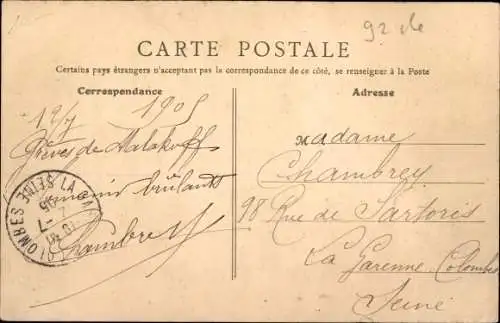 92 île
CARTE POSTALE
Certains pays étrangers n'acceptant pas la correspondance de ce côté, se renseigner à la Poste
Correspondance
Adresse
12/7 1905
Grèves de Malakoff
Souvenir brûlant
Chambrey
LA GARENNE-COLOMBES SEINE
Madame
Chambrey
98 Rue de Sartoris
La Garenne Colombes
Seine